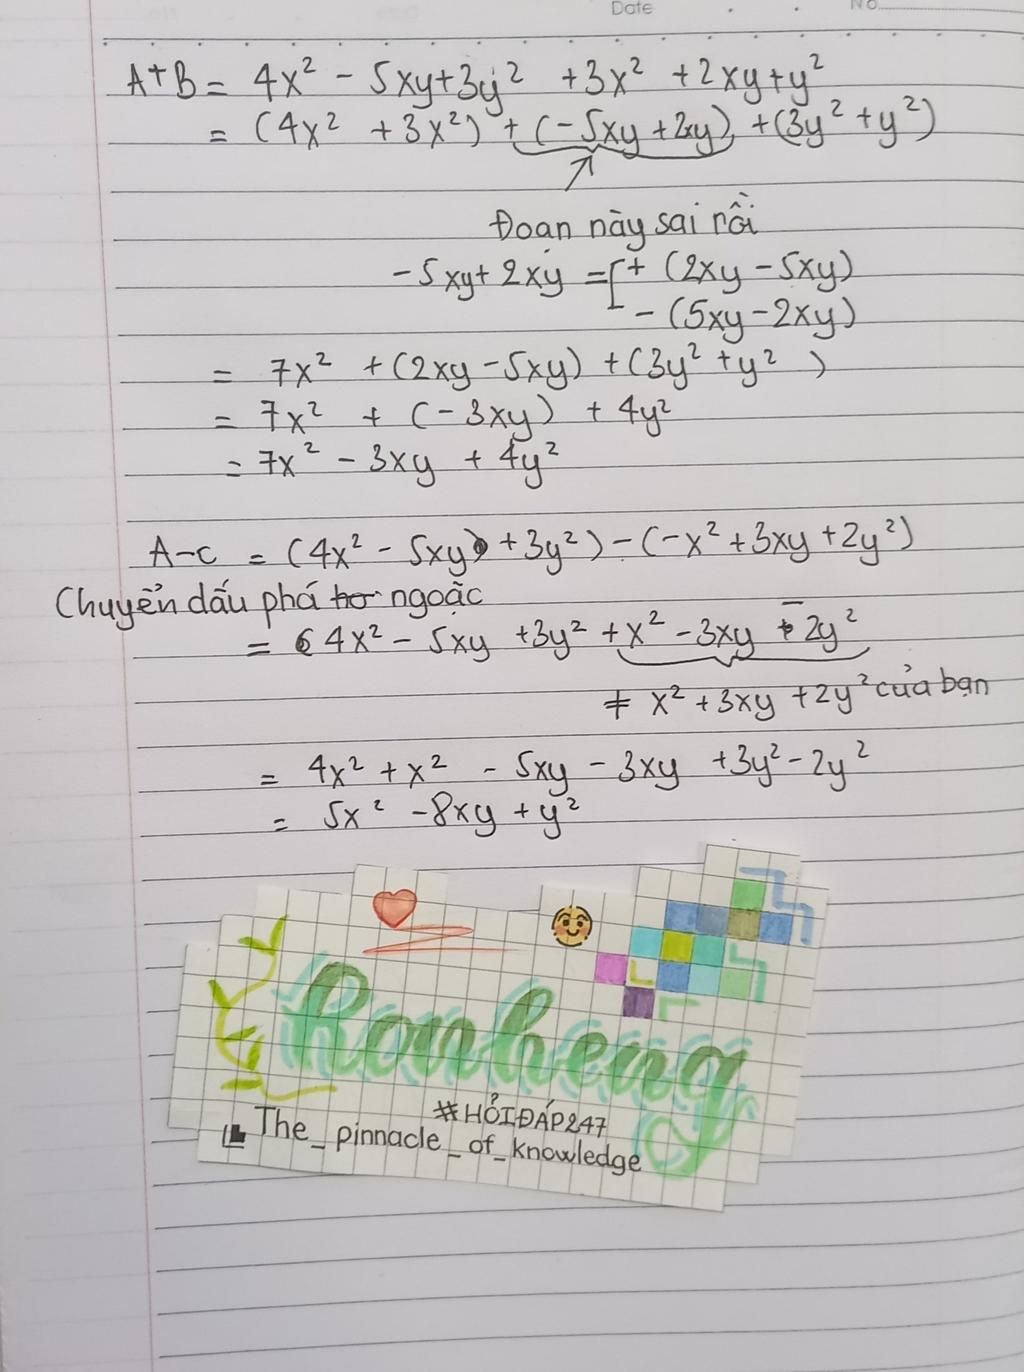 Date No
A+B = 4x² - 5xy+3y² +3x² +2xy+y²
= (4x² +3x²) + (-5xy +2xy) +(3y² +y²)
Đoạn này sai rồi
-5xy+ 2xy = [+ (2xy -5xy)
- (5xy-2xy)
= 7x² +(2xy -5xy) +(3y² +y²)
= 7x² + (-3xy) + 4y²
= 7x² - 3xy + 4y²
A-C = (4x² - 5xy +3y²) -(-x² +3xy +2y²)
Chuyển dấu phá ngoặc
= 4x² - 5xy +3y² +x² -3xy - 2y²
≠ x² +3xy +2y² của bạn
= 4x² +x² - 5xy - 3xy +3y² - 2y²
= 5x² -8xy + y²
Ronheng
#HỎIĐÁP247
The_pinnacle_of_knowledge